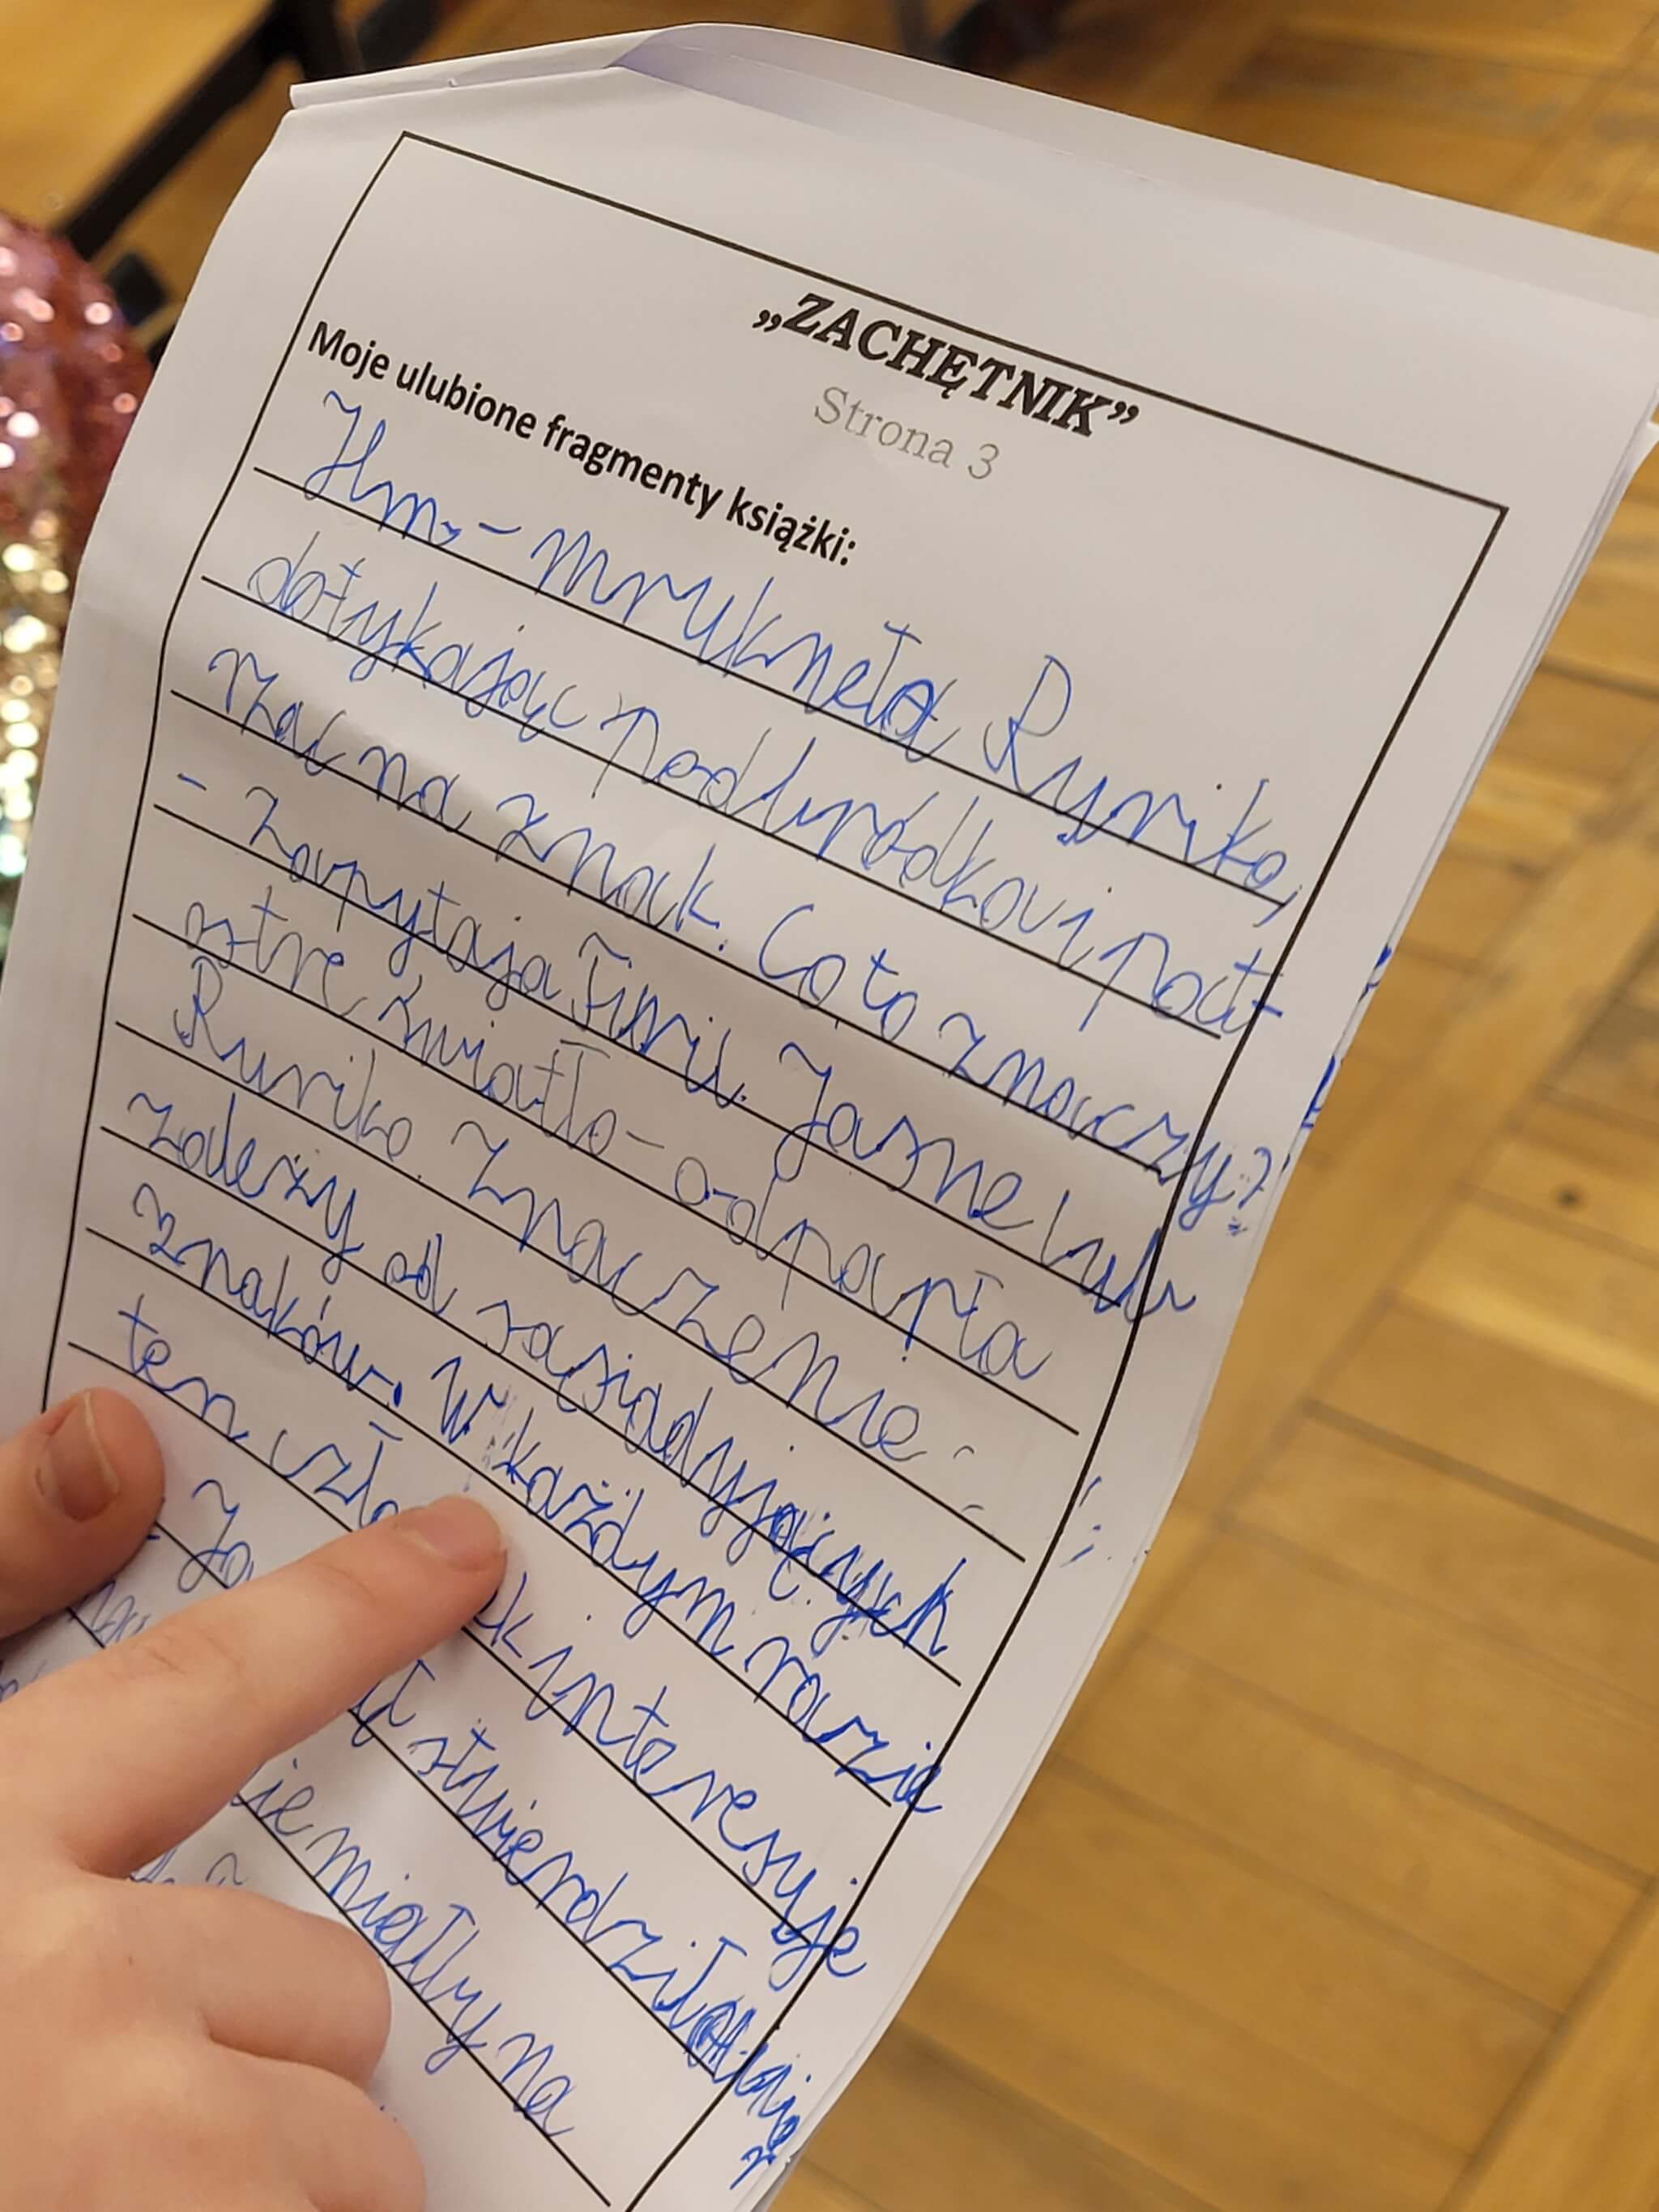 „ZACHĘTNIK”
Strona 3
Moje ulubione fragmenty książki:
Hm, - mrukneła Ruriko,
dotykając podbródka i pat-
rzac na znak. Co to znaczy?
- zapytaja Finii. Jasne lub
ostre światło - odparła
Ruriko. Znaczenie
zależy od sąsiadyjących
znaków. W każdym razie
ten czło k interesuje
- Ja stwierdziła
ie miały na